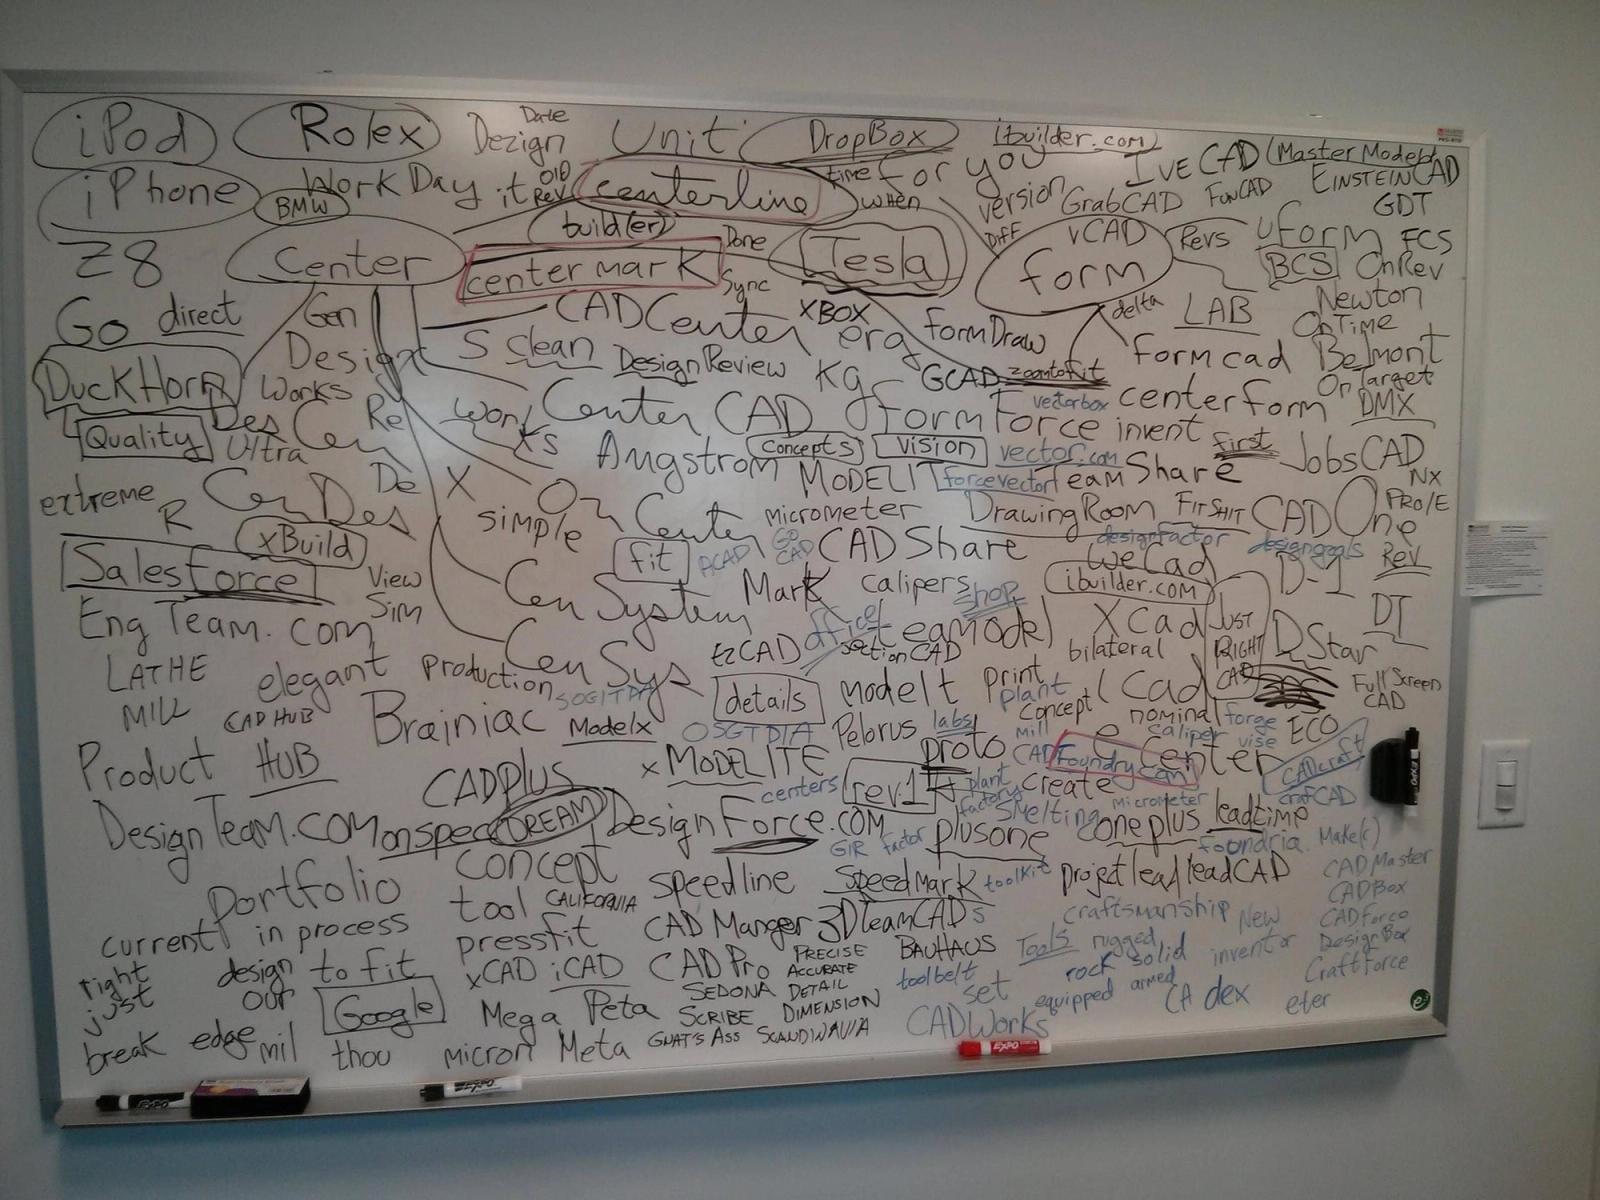 iPod Rolex Dezign Date Unit DropBox ibuilder.com
iPhone BMW Work Day it OlD Rev centerline time for you when version I'VE CAD Master Model
GrabCAD FunCAD EINSTEINCAD GDT
Z8 Center build(er) center mark Done Sync Tesla Diff vCAD form Revs uform FCS
BCS OnRev
Go direct Gen CADCenter XBOX erg formDraw delta LAB Newton
OnTime
DuckHorn Works Design S Clean DesignReview Kg GCAD zoomtofit formcad Belmont
OnTarget
Quality Ultra Des Cen Re Works Center CAD formForce vectorbox centerform DMX
invent first JobsCAD NX
extreme R CenDes De X xs Angstrom concepts vision vector.com
MODELIT forcevector TeamShare
simple On Center micrometer DrawingRoom FITSHIT CADOne PRO/E
xBuild fit ACAD GO CAD CADShare designfactor designgoals Rev
SalesForce View Sim Cen System Mark calipers shop WeCad ibuilder.com D-1
EngTeam.com office teamodel XCad JUST RIGHT CAD DStar DT
LATHE elegant production CenSys EZCAD sectionCAD bilateral Full Screen CAD
Mill CADHUB Brainiac Modelx details modelt print plant concept iCad
OSGTDIA Pelorus labs mill nominal forge ECO
Product HUB CADPLUS xMODELITE proto CADFoundry.com e center caliper vise CADcraft
centers rev.1 plant factory create micrometer crafCAD
DesignTeam.com onspec DREAM DesignForce.com smelting oneplus leadtime
GIR factor plusone foundria Make(r)
Portfolio concept speedline SpeedMark toolkit projectlead leadCAD CADMaster
tool CALIFORNIA CADBox
current in process pressfit CAD Manger 3DTeamCADs craftsmanship New CADForce
right just design our to fit xCAD iCAD CADPro PRECISE BAUHAUS Tools rugged inventor DesignBox
ACCURATE toolbelt rock solid CraftForce
Google Mega Peta SEDONA DETAIL set equipped armed CAdex eter
SCRIBE DIMENSION
break edge mil thou micron Meta GNAT'S ASS SCANDINAVIA CADWorks
EXPO
EXPO
EXPO
EXPO